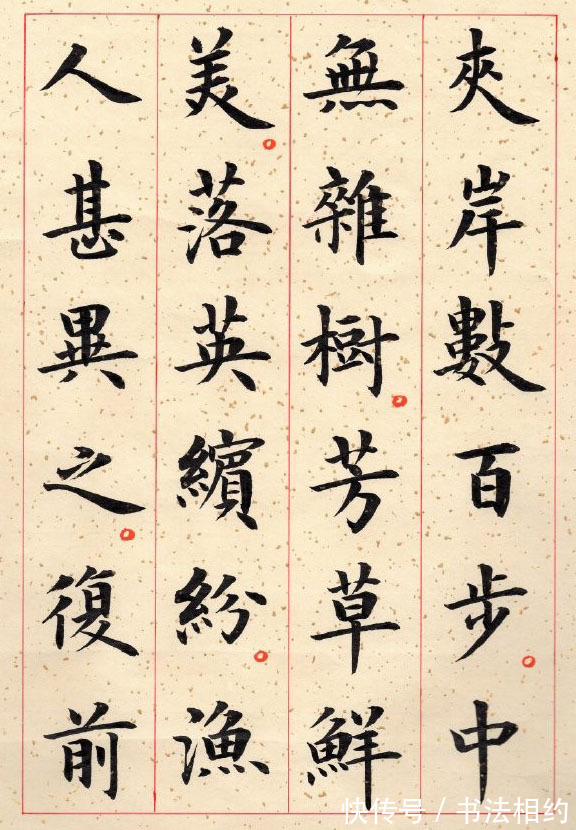 夾岸數百步。中
無雜樹。芳草鮮
美。落英繽紛。漁
人甚異之。復前
快传号 / 书法相约